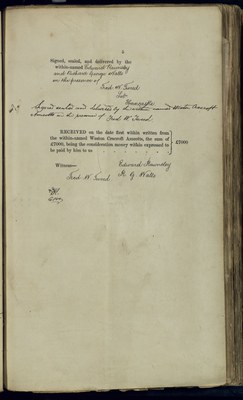 Signed, sealed, and delivered by the
within-named Edward Brumley
and Richard George Watts
in the presence of
Fred. W. Tweed
Signed sealed and delivered by the within named Weston Cracroft
Amcotts in the presence of Fred. W. Tweed
RECEIVED on the date first within written from
the within-named Weston Cracroft Amcotts, the sum of
£7000, being the consideration money within expressed to
be paid by him to us
£7000
Witness—
Edward Brumley
Fred. W. Tweed
R. G. Watts